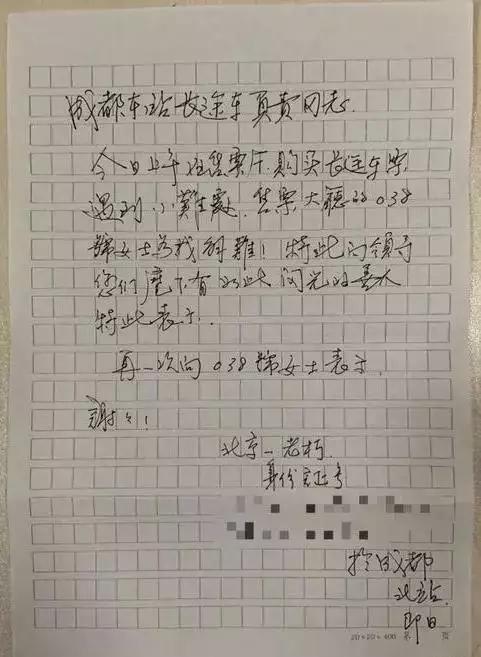 成都车站长途车负责同志.
今日上午在售票厅.购买长途车票
遇到小難處.售票大廳的038
號女士为我解難!特此向领导
您们麾下有如此闪光的善人
特此表示.
再一次向038號女士表示.
谢々!
北京一老朽.
身份证号
於成都
北站.
即日
20×20=400 第 页